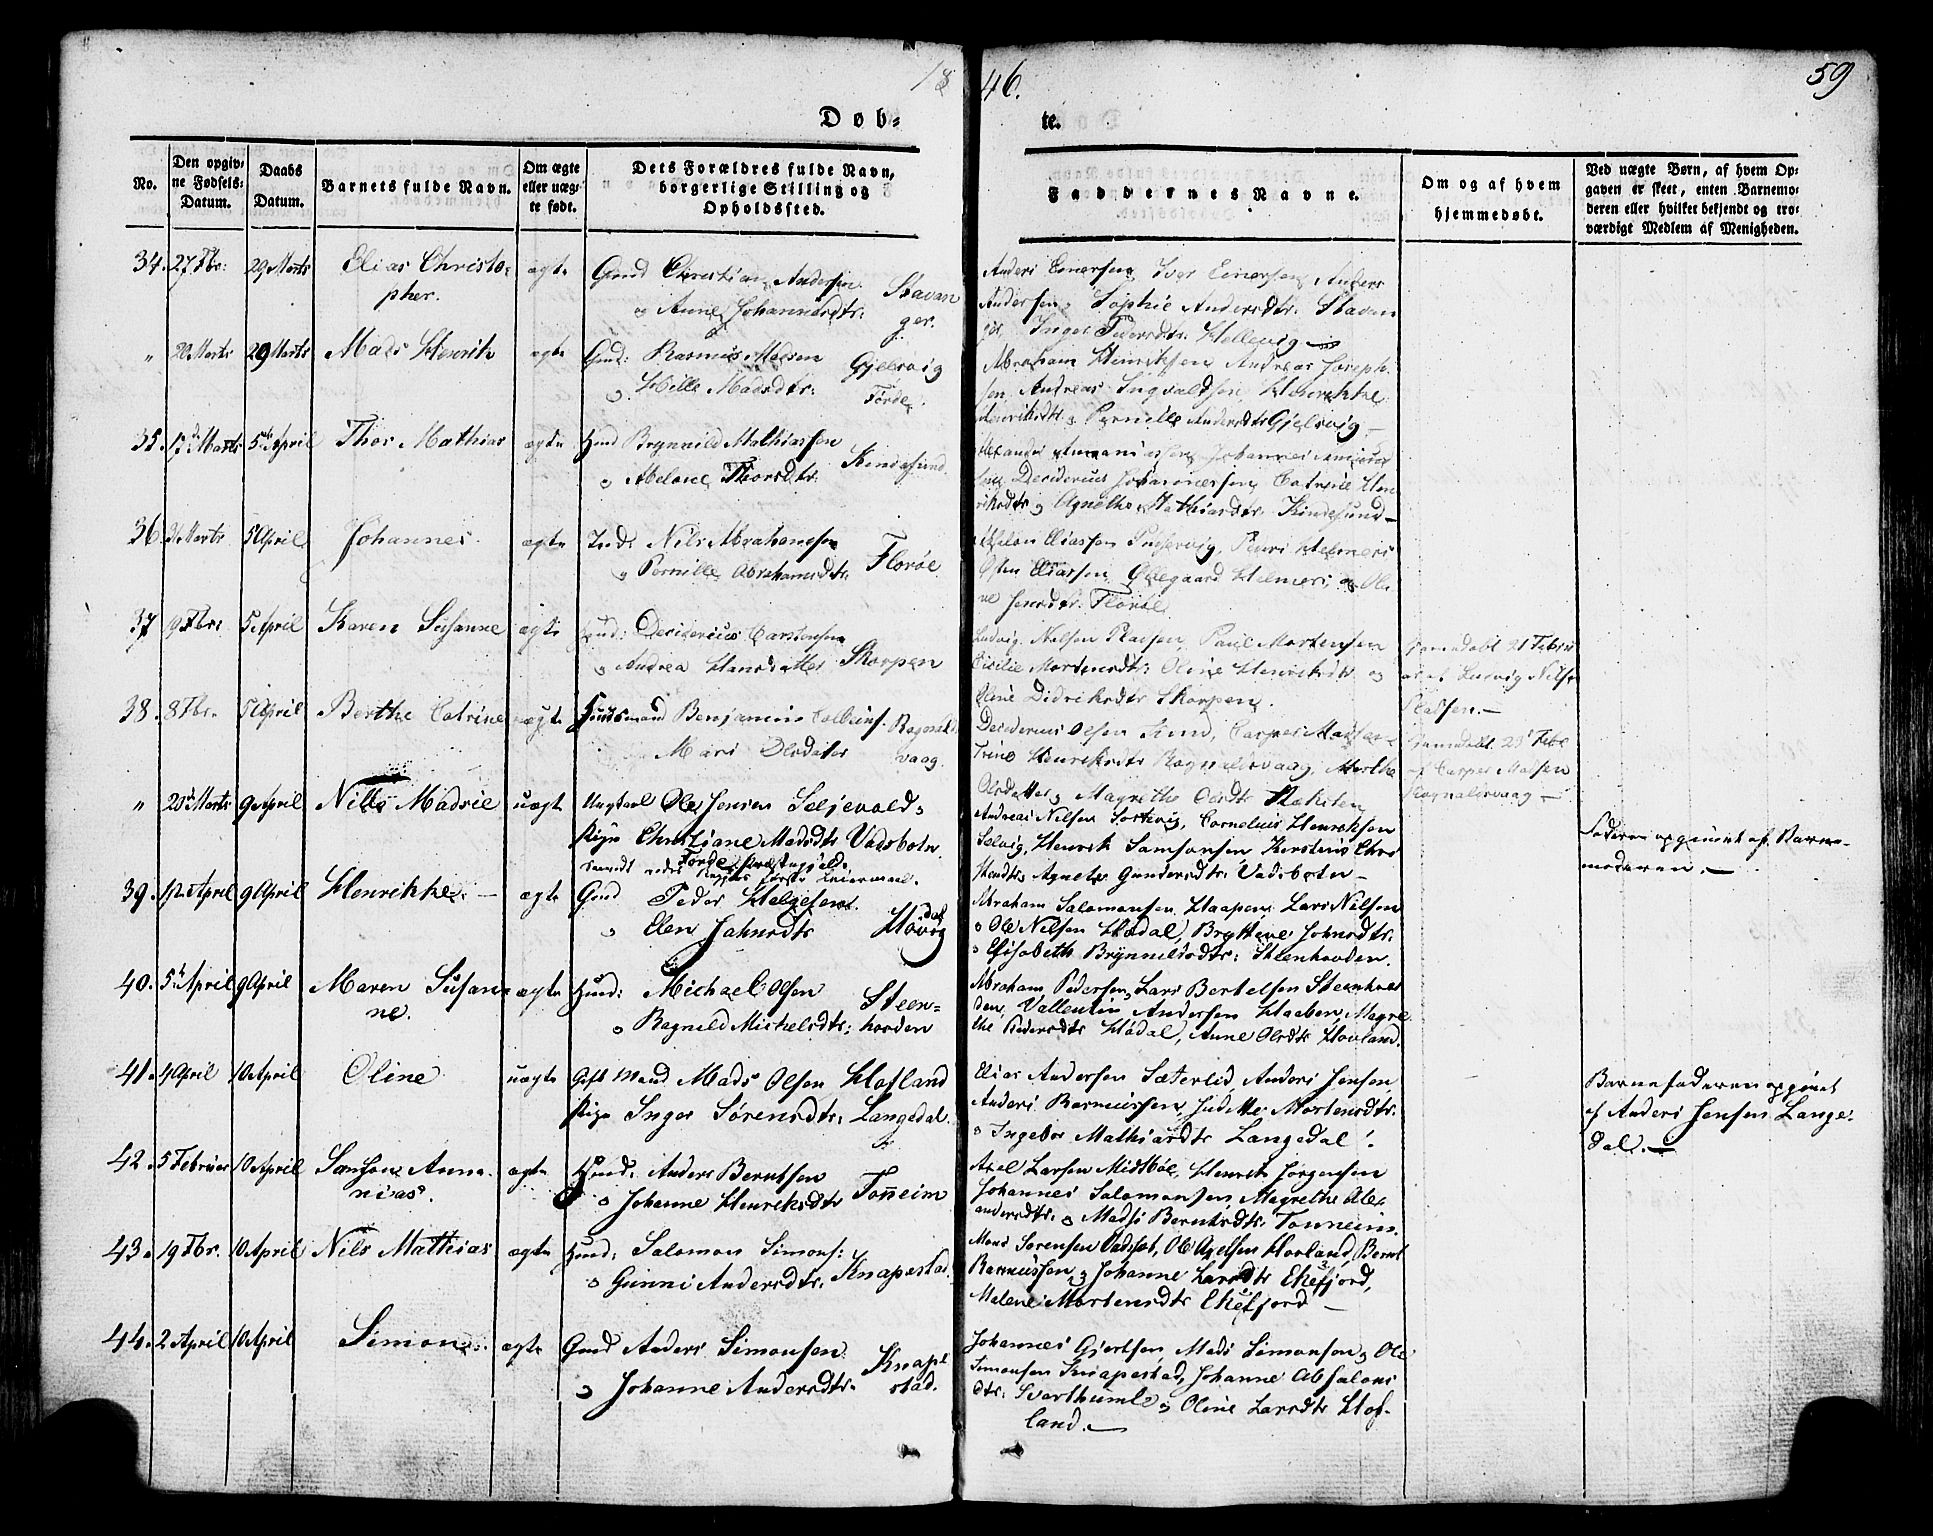 18 46. 59
Døb- te.
No.
Den opgiv-
ne Fødsels-
Datum.
Daabs
Datum.
Barnets fulde Navn.
Om ægte
eller uæg-
te født.
Dets Forældres fulde Navn,
borgerlige Stilling og
Opholdssted.
Faddernes Navne.
Om og af hvem
hjemmedøbt.
Ved uægte Børn, af hvem Op-
gaven er skeet, enten Barnemo-
deren eller hvilket bekjendt og tro-
værdigt Medlem af Menigheden.
34. 27 Fbr: 29 Marts Elias Christo-
pher.
ægte Gmd Christian Andersen
og Anne Johannesdtr: Stavan
ger.
Anders Einersen, Iver Einersen, Anders
Andersen, Sophie Andersdtr. Stavan
ger, Inger Pedersdtr. Hellevig
" 20 Marts 29 Marts Mads Henrik ægte Gmd: Rasmus Madsen
Hille Madsdtr: Gjelsvig
Førde.
Abraham Henriksen Andreas Joseph-
sen, Andreas Ingvaldsen, Henrikke
Henriksdtr og Pernille Andersdtr Gjelsvig
35. 17de Marts 5te April Thor Mathias ægte Hmd Brynnild Mathiassen
og Abelone Thorsdtr.
Desiderius Johannessen, Catrine Hen
riksdtr og Agnethe Mathiasdtr.
36. 5 April Johannes. ægte Nils Abrahamsen
og Pernille Abrahamsdtr. Florøe
Eliassen
Østen Eliassen, Helmers, og Oli
ne Jensdtr. Florøe
37 9 Fbr: 5 April Karen Susanne ægte Hmd: Desiderius Carstensen
og Andrea Hansdatter Skorpen
Ludvig Nilsen Klassen, Paul Mortensen
Cicilie Mortensdtr: Oline Henriksdtr og
Oline Didriksdtr Skorpen.
Hjemdøbt 21 Febru
ar af Ludvig Nilse
38. 8 Fbr. 5 April Berthe Catrine ægte Huusmand Benjamin
Mari Olsdatter Ragnalds
vaag.
Desiderius Olsen Casper Madsen
Trine Henriksdtr Ragnaldsvaag, Marthe
Olsdatter og Magrethe Olsdtr
Hjemdøbt 23 Febr
af Casper Madsen
Ragnaldsvaag
" 20de Marts 9 April Nille Madsie uægte Ungkarl Ole Jensen Seljevold,
Pige Christiane Madsdtr Vadsbotn
Førde Præstegjeld.
Begges første Leiermaal.
Andreas Nilsen Sortevig, Cornelius Henriksen
Selvig, Henrik Samsonsen Kirstine Chri
Agnete Gundersdtr. Vadsbotn
Faderen opgivet af Barne-
moderen.
39. 1ste April 9 April Henrikke. ægte Gmd Peder Helgesen.
" Elen Johnsdtr
Abraham Salomonsen Haapen, Lars Nilsen
Ole Nilsen Hødal, Brytteve Johnsdtr:
Elisabeth Brynnelsdtr: Stenhovden.
40. 5te April 9 April Maren Susan-
ne.
ægte Hmd: Michael Olsen
" Ragnild Michelsdtr: Steen-
hovden
Abraham Pedersen, Lars Bertelsen Steenhov
den, Vallentin Andersen Haaben, Magre
the Pedersdtr Hødal, Anne Olsdtr Hovland.
41. 4 April 10 April Oline uægte Gift Mand Mads Olsen Hofland
Pige Inger Sørensdtr: Langedal.
Elias Andersen Sæterlid Anders Jensen
Anders Rasmussen, Judithe Mortensdtr.
Ingebor Mathiasdtr Langedal.
Barnefaderen opgivet
af Anders Jensen Lange-
dal.
42. 5 Februar 10 April Samson Anna-
nias.
ægte Hmd. Anders Berntsen
" Johanne Henriksdtr Tonheim
Axel Larsen Midtbøe, Henrik Jørgensen
Johannes Salomonsen Magrethe Alex
andersdtr. og Madsi Berntsdtr. Tonheim.
43. 19 Fbr. 10 April Nils Mathias ægte Hmd: Salomon Simons:
" Gunni Andersdtr. Knapestad.
Mons Sørensen Vadset, Ole Axelsen Hovland, Bernt
Rasmussen, og Johanne Larsdtr Eikefjord,
Malene Mortensdtr Eikefjord
44. 2 April 10 April Simon. ægte Gmd Anders Simonsen
" Johanne Andersdtr. Knape
stad.
Johannes Gjertsen Mads Simonsen, Ole
Simonsen Knapestad, Johanne Absalons
dtr: Svarthumle og Oline Larsdtr Hof-
land.